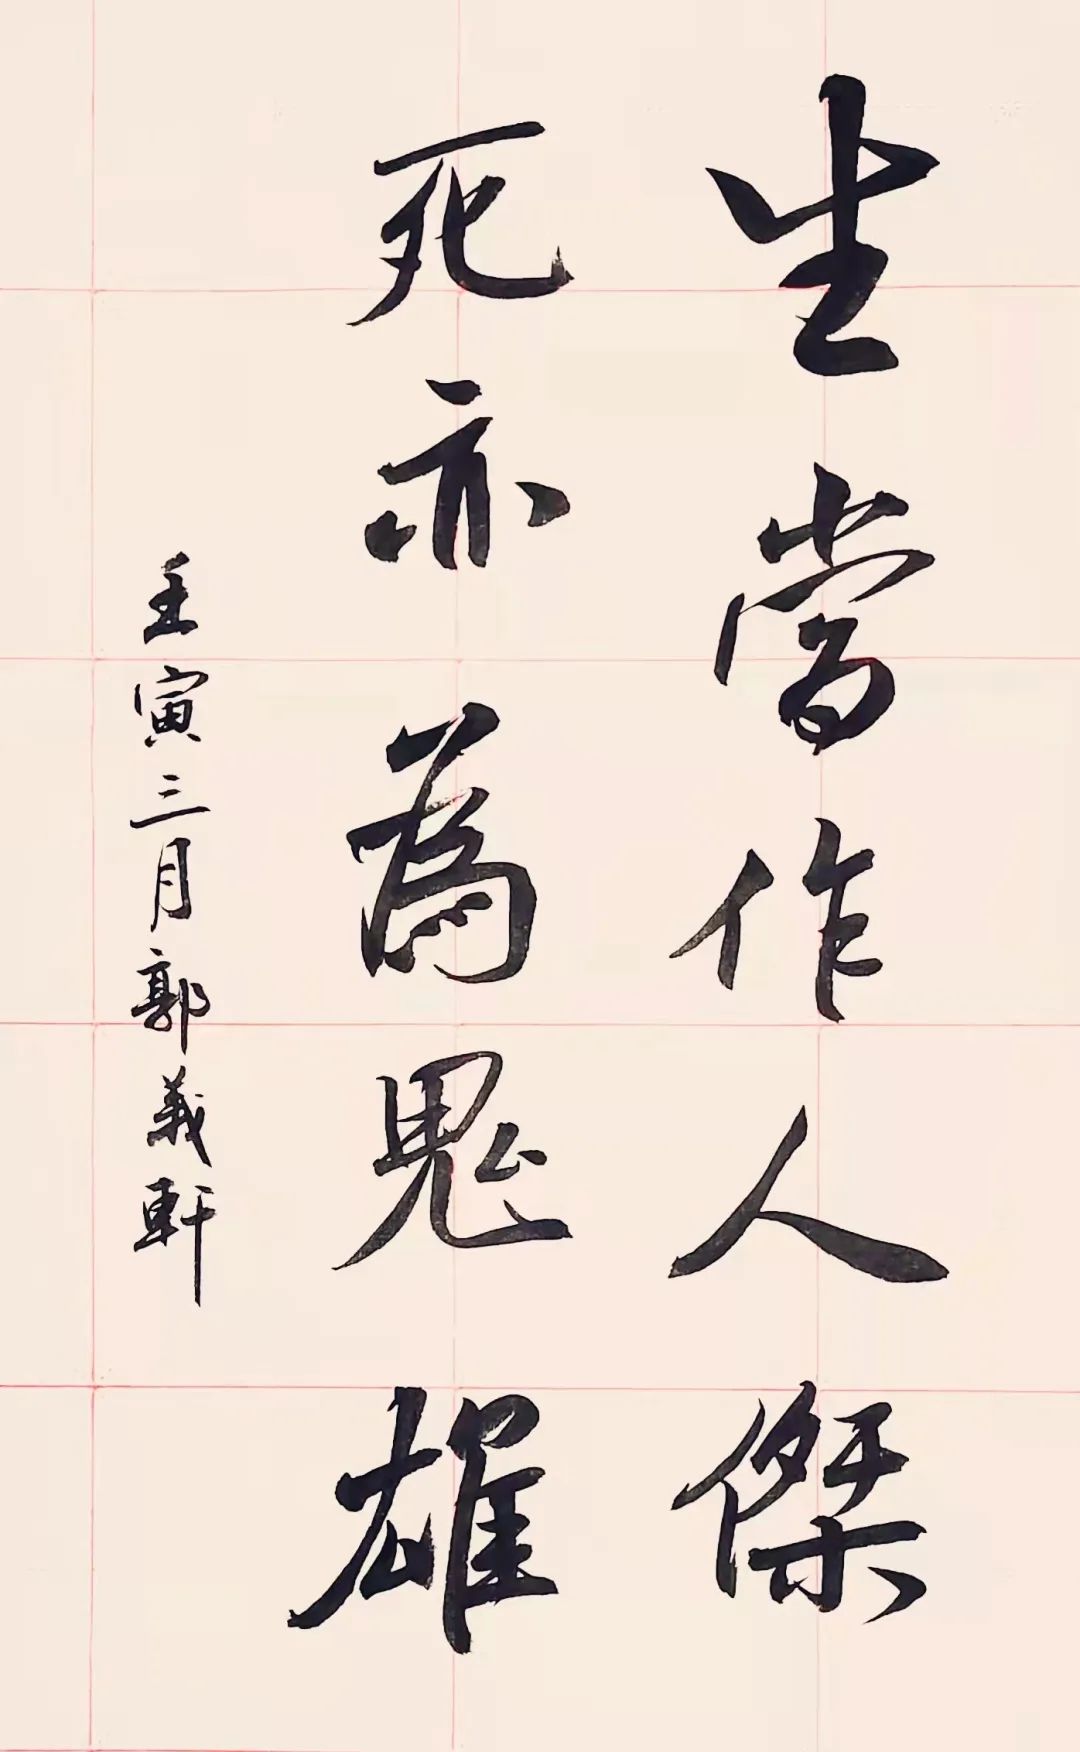 生當作人傑
死亦為鬼雄
壬寅三月郭義軒